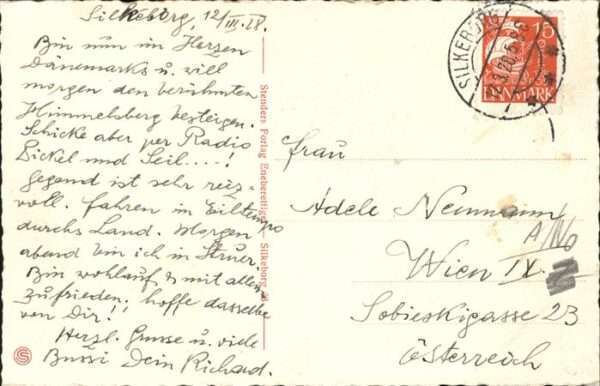 Silkeborg, 12/III.28.
Bin nun im Herzen
Dänemarks u. will
morgen den berühmten
Himmelsberg besteigen.
Schicke aber per Radio
Pickel und Seil....!
Gegend ist sehr reiz-
voll. Fahren in Eiltempo
durchs Land. Morgen
abend bin ich in Struer.
Bin wohlauf & mit allem
zufrieden; hoffe dasselbe
von Dir!
Herzl. Grüsse u. viele
Bussi Dein Richard.
Stenders Forlag Eneberettiget Silkeborg
S
SILKEBORG
15
DANMARK
Frau
Adele Neumann
Wien IX.
Sobieskigasse 23
Österreich